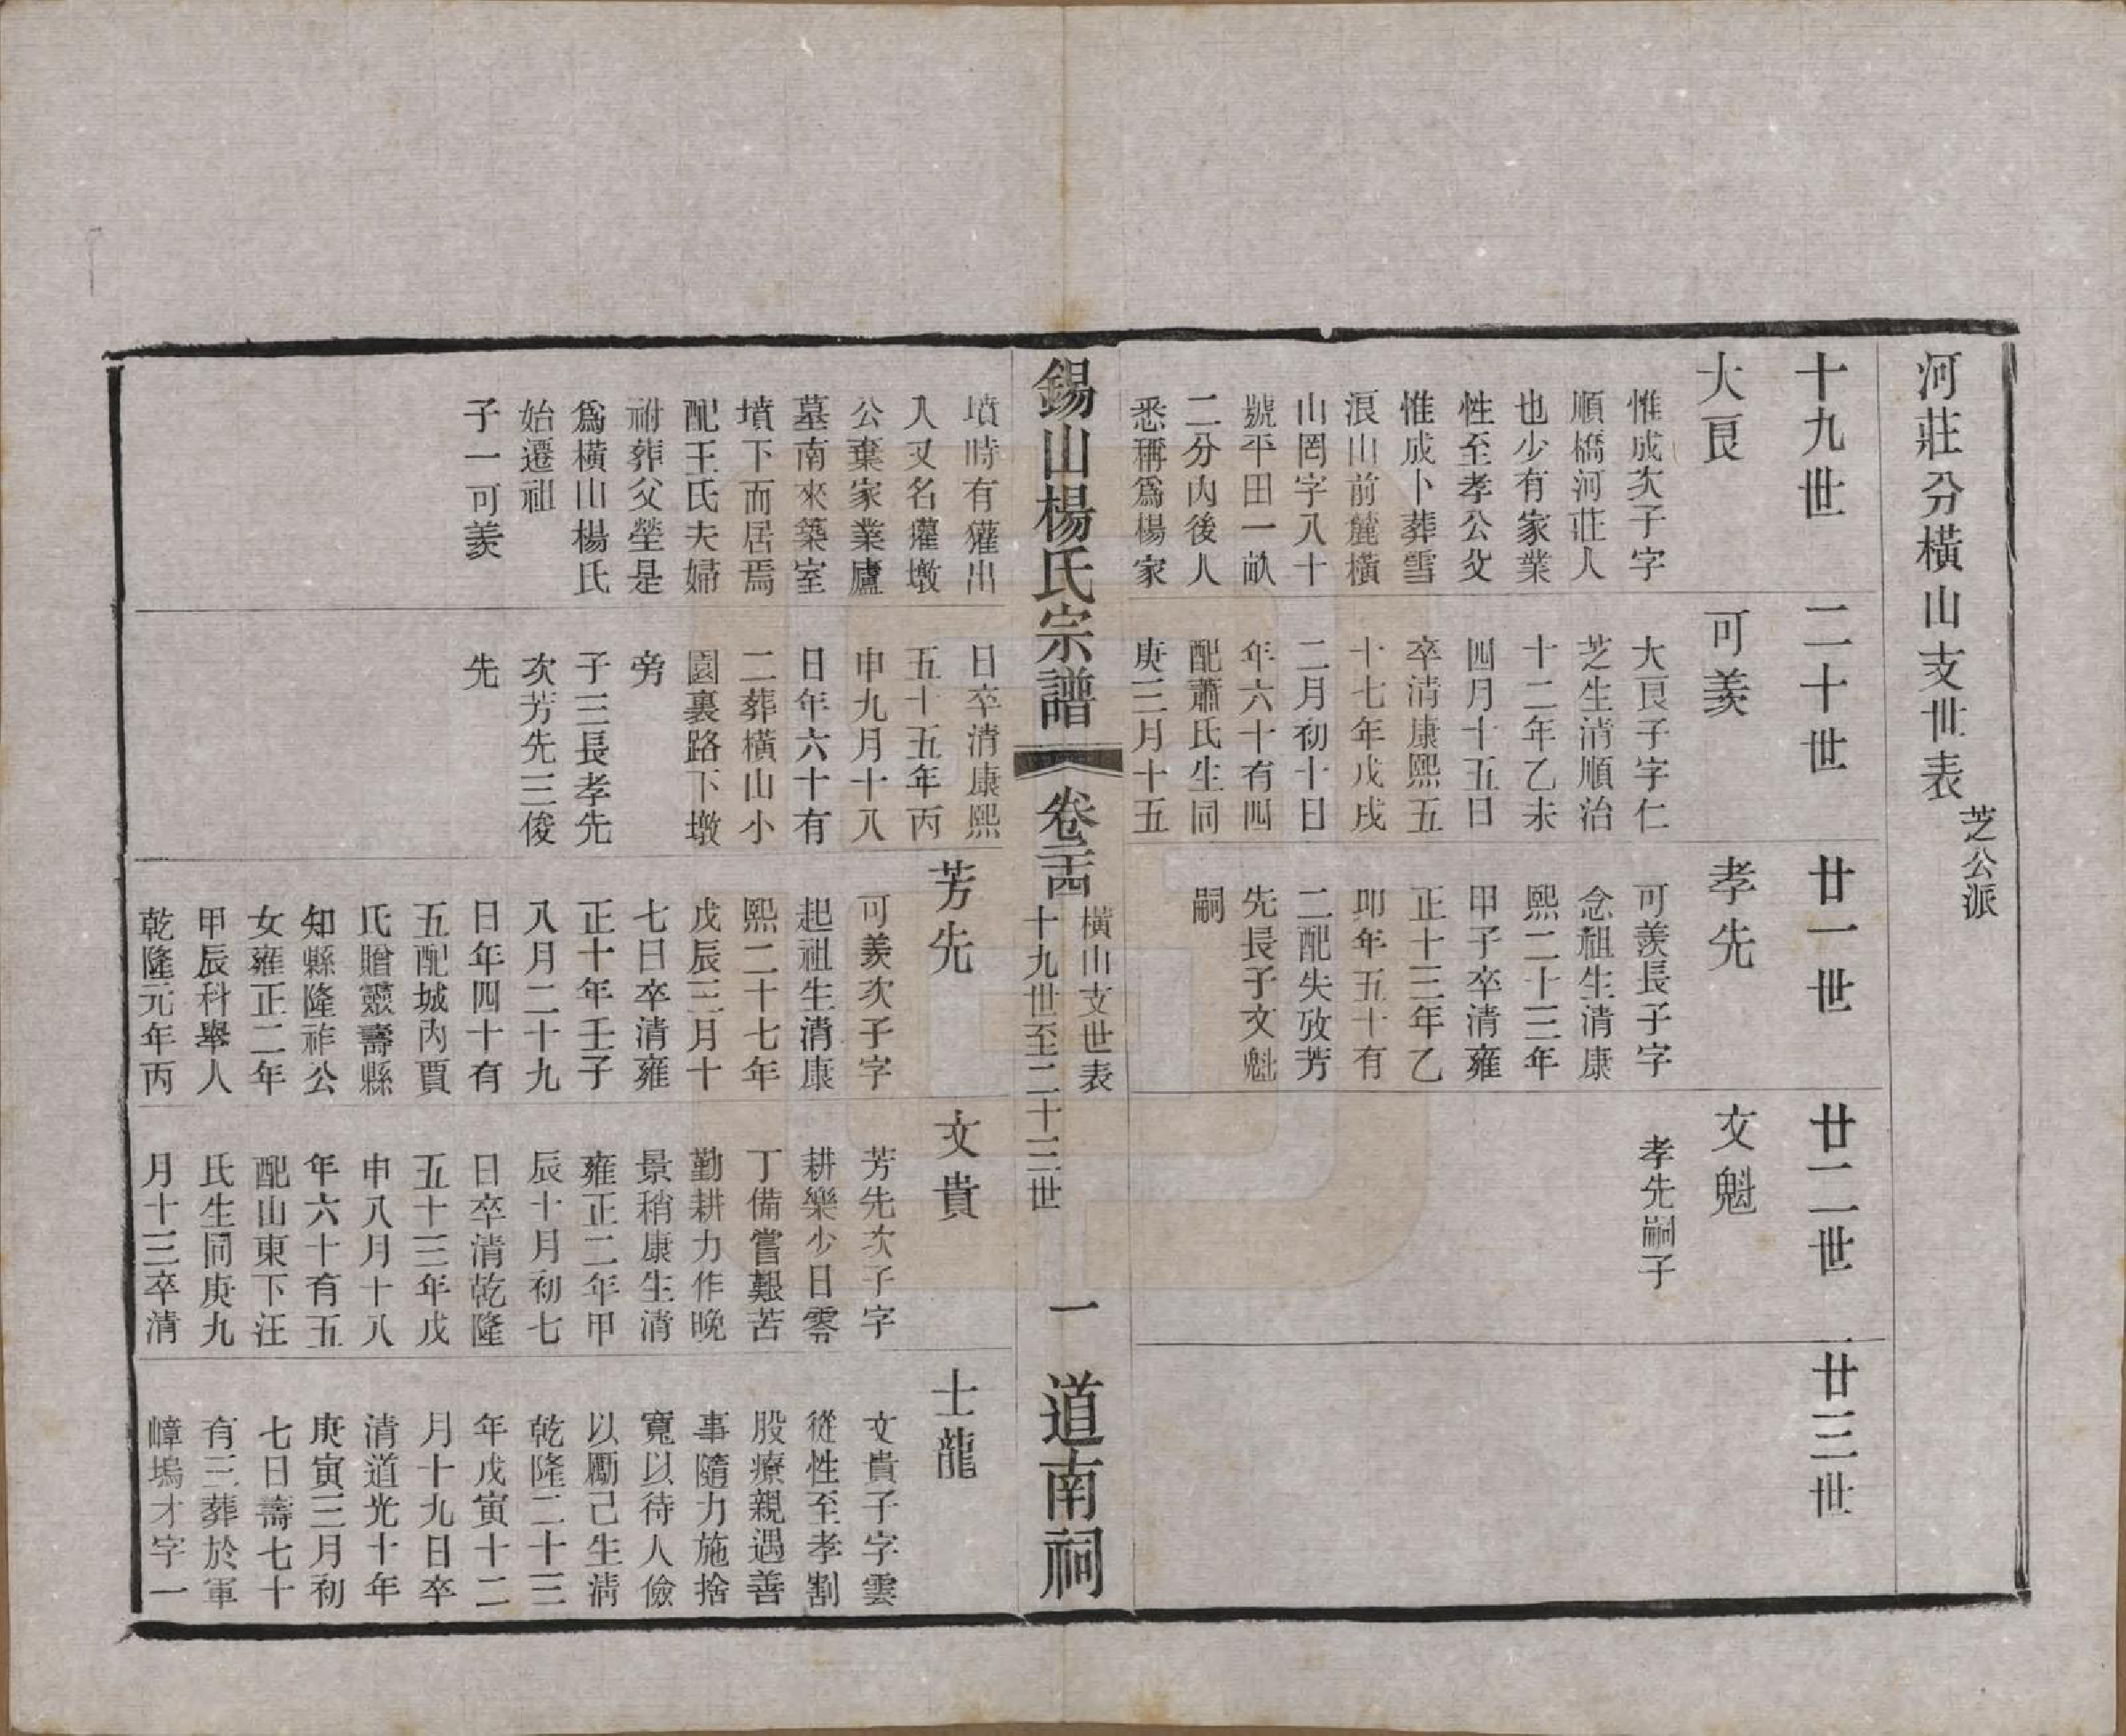 河莊分橫山支世表 芝公派
十九世
大艮
惟成次子字
順橋河莊人
也少有家業
性至孝公父
惟成卜葬雪
浪山前麓橫
山罔字八十
號平田一畝
二分內後人
悉稱爲楊家
墳時有獾出
入又名獾墩
公棄家業廬
墓南來築室
墳下而居焉
配王氏夫婦
祔葬父塋是
爲橫山楊氏
始遷祖
子一可羨
二十世
可羨
大艮子字仁
芝生清順治
十二年乙未
四月十五日
卒清康熙五
十七年戊戌
二月初十日
年六十有四
配蕭氏生同
庚三月十五
日卒清康熙
五十五年丙
申九月十八
日年六十有
二葬橫山小
園裏路下墩
旁
子三長孝先
次芳先三俊
先
廿一世
孝先
可羨長子字
念祖生清康
熙二十三年
甲子卒清雍
正十三年乙
卯年五十有
二配失攷芳
先長子文魁
嗣
芳先
可羨次子字
起祖生清康
熙二十七年
戊辰三月十
七日卒清雍
正十年壬子
八月二十九
日年四十有
五配城內賈
氏贈靈壽縣
知縣隆祚公
女雍正二年
甲辰科舉人
乾隆元年丙
廿二世
文魁
孝先嗣子
文貴
芳先次子字
耕樂少日零
丁備嘗艱苦
勤耕力作晚
景稍康生清
雍正二年甲
辰十月初七
日卒清乾隆
五十三年戊
申八月十八
年六十有五
配山東下汪
氏生同庚九
月十三卒清
廿三世
士龍
文貴子字雲
從性至孝割
股療親遇善
事隨力施捨
寬以待人儉
以勵己生清
乾隆二十三
年戊寅十二
月十九日卒
清道光十年
庚寅三月初
七日壽七十
有三葬於軍
嶂塢才字一
錫山楊氏宗譜
卷二十四
橫山支世表
十九世至二十三世
一
道南祠